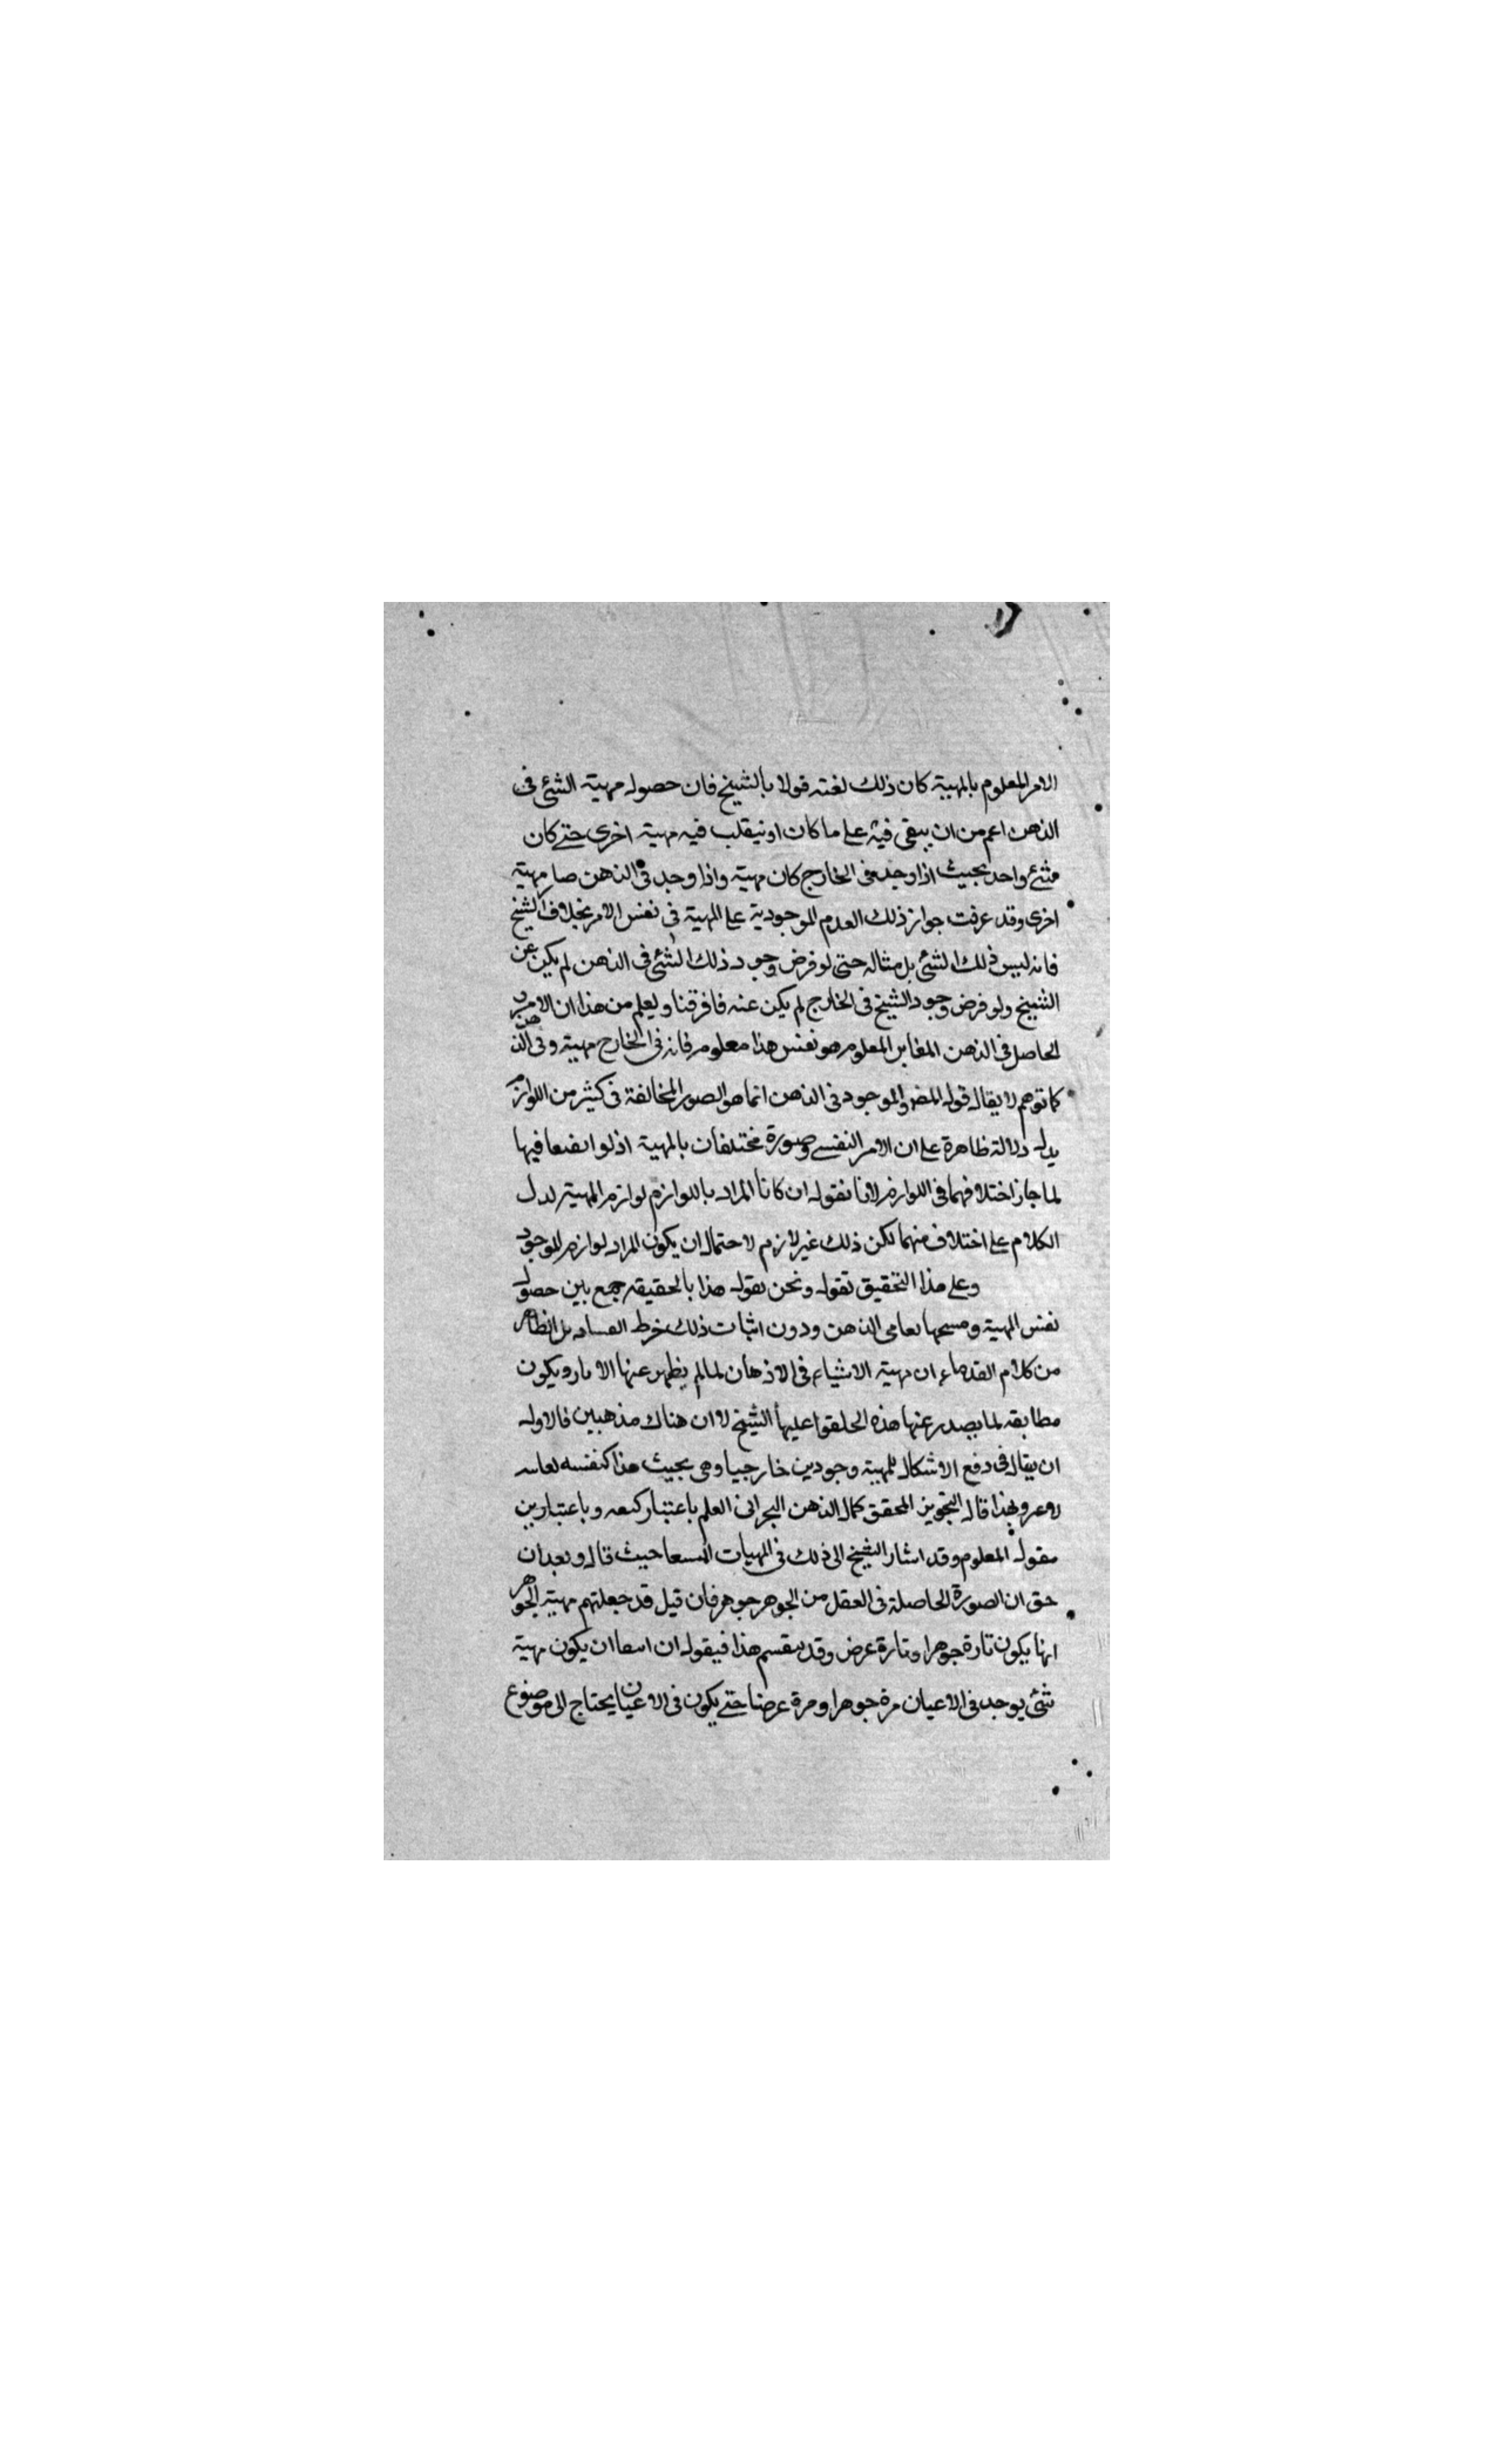 الامر المعلوم بالمهية كان ذلك لغته قولا بالشيخ فان حصوله مهية الشئ فى
الذهن اعم من ان يبقى فيه على ما كان او ينقلب فيه مهية اخرى حتى كان
شئ واحد بحيث اذا وجد فى الخارج كان مهية واذا وجد فى الذهن صار مهية
اخرى وقد عرفت جواز ذلك العدم الموجودية على المهية فى نفس الامر بخلاف الشيخ
فانه ليس ذلك الشئ بل مثاله حتى لو فرض وجود ذلك الشئ فى الذهن لم يكن عن
الشيخ ولو فرض وجود الشيخ فى الخارج لم يكن عنه فافرقنا ويعلم من هذا ان الامر
الحاصل فى الذهن المغاير المعلوم هو نفس هذا معلوم فانه فى الخارج مهية وفى الذهن
كما توهم لا يقال قوله والموجود فى الذهن انما هو الصور المخالفة فى كثير من اللوازم
يدل دلالة ظاهرة على ان الامر النفسى وصورة مختلفان بالمهية اذ لو فيها
لما جاز اختلافهما فى اللوازم لانا نقول ان كانا المراد باللوازم لوازم المهية لدل
الكلام على اختلاف منهما لكن ذلك غير لازم لاحتمال ان يكون المراد لوازم الموجود
وعلى هذا التحقيق نقول ونحن نقول هذا بالحقيقه جمع بين حصول
نفس المهية الذهن ودون اثبات ذلك خرط بل الظاهر
من كلام القدماء ان مهية الاشياء فى الاذهان لما لم يظهر عنها ويكون
مطابقه لما يصدر عنها هذه عليها الشيخ لا ان هناك مذهبين فالاول
ان يقال فى دفع الاشكال للمهية وجودين خارجيا وهى بحيث هذا كنفسه
وبهذا قال المحقق كمال الذهن البحرانى العلم باعتبار وباعتبار من
مقوله المعلوم وقد اشار الشيخ الى ذلك فى الهيات حيث قال وبعد ان
حق ان الصورة الحاصلة فى العقل من الجوهر جوهر فان قيل قد جعلتهم مهية الجوهر
انها يكون تارة جوهرا وتارة عرض وقد هذا فيقول ان ان يكون مهية
شئ يوجد فى الاعيان مرة جوهرا ومرة عرضا حتى يكون فى الاعيان يحتاج الى موضوع